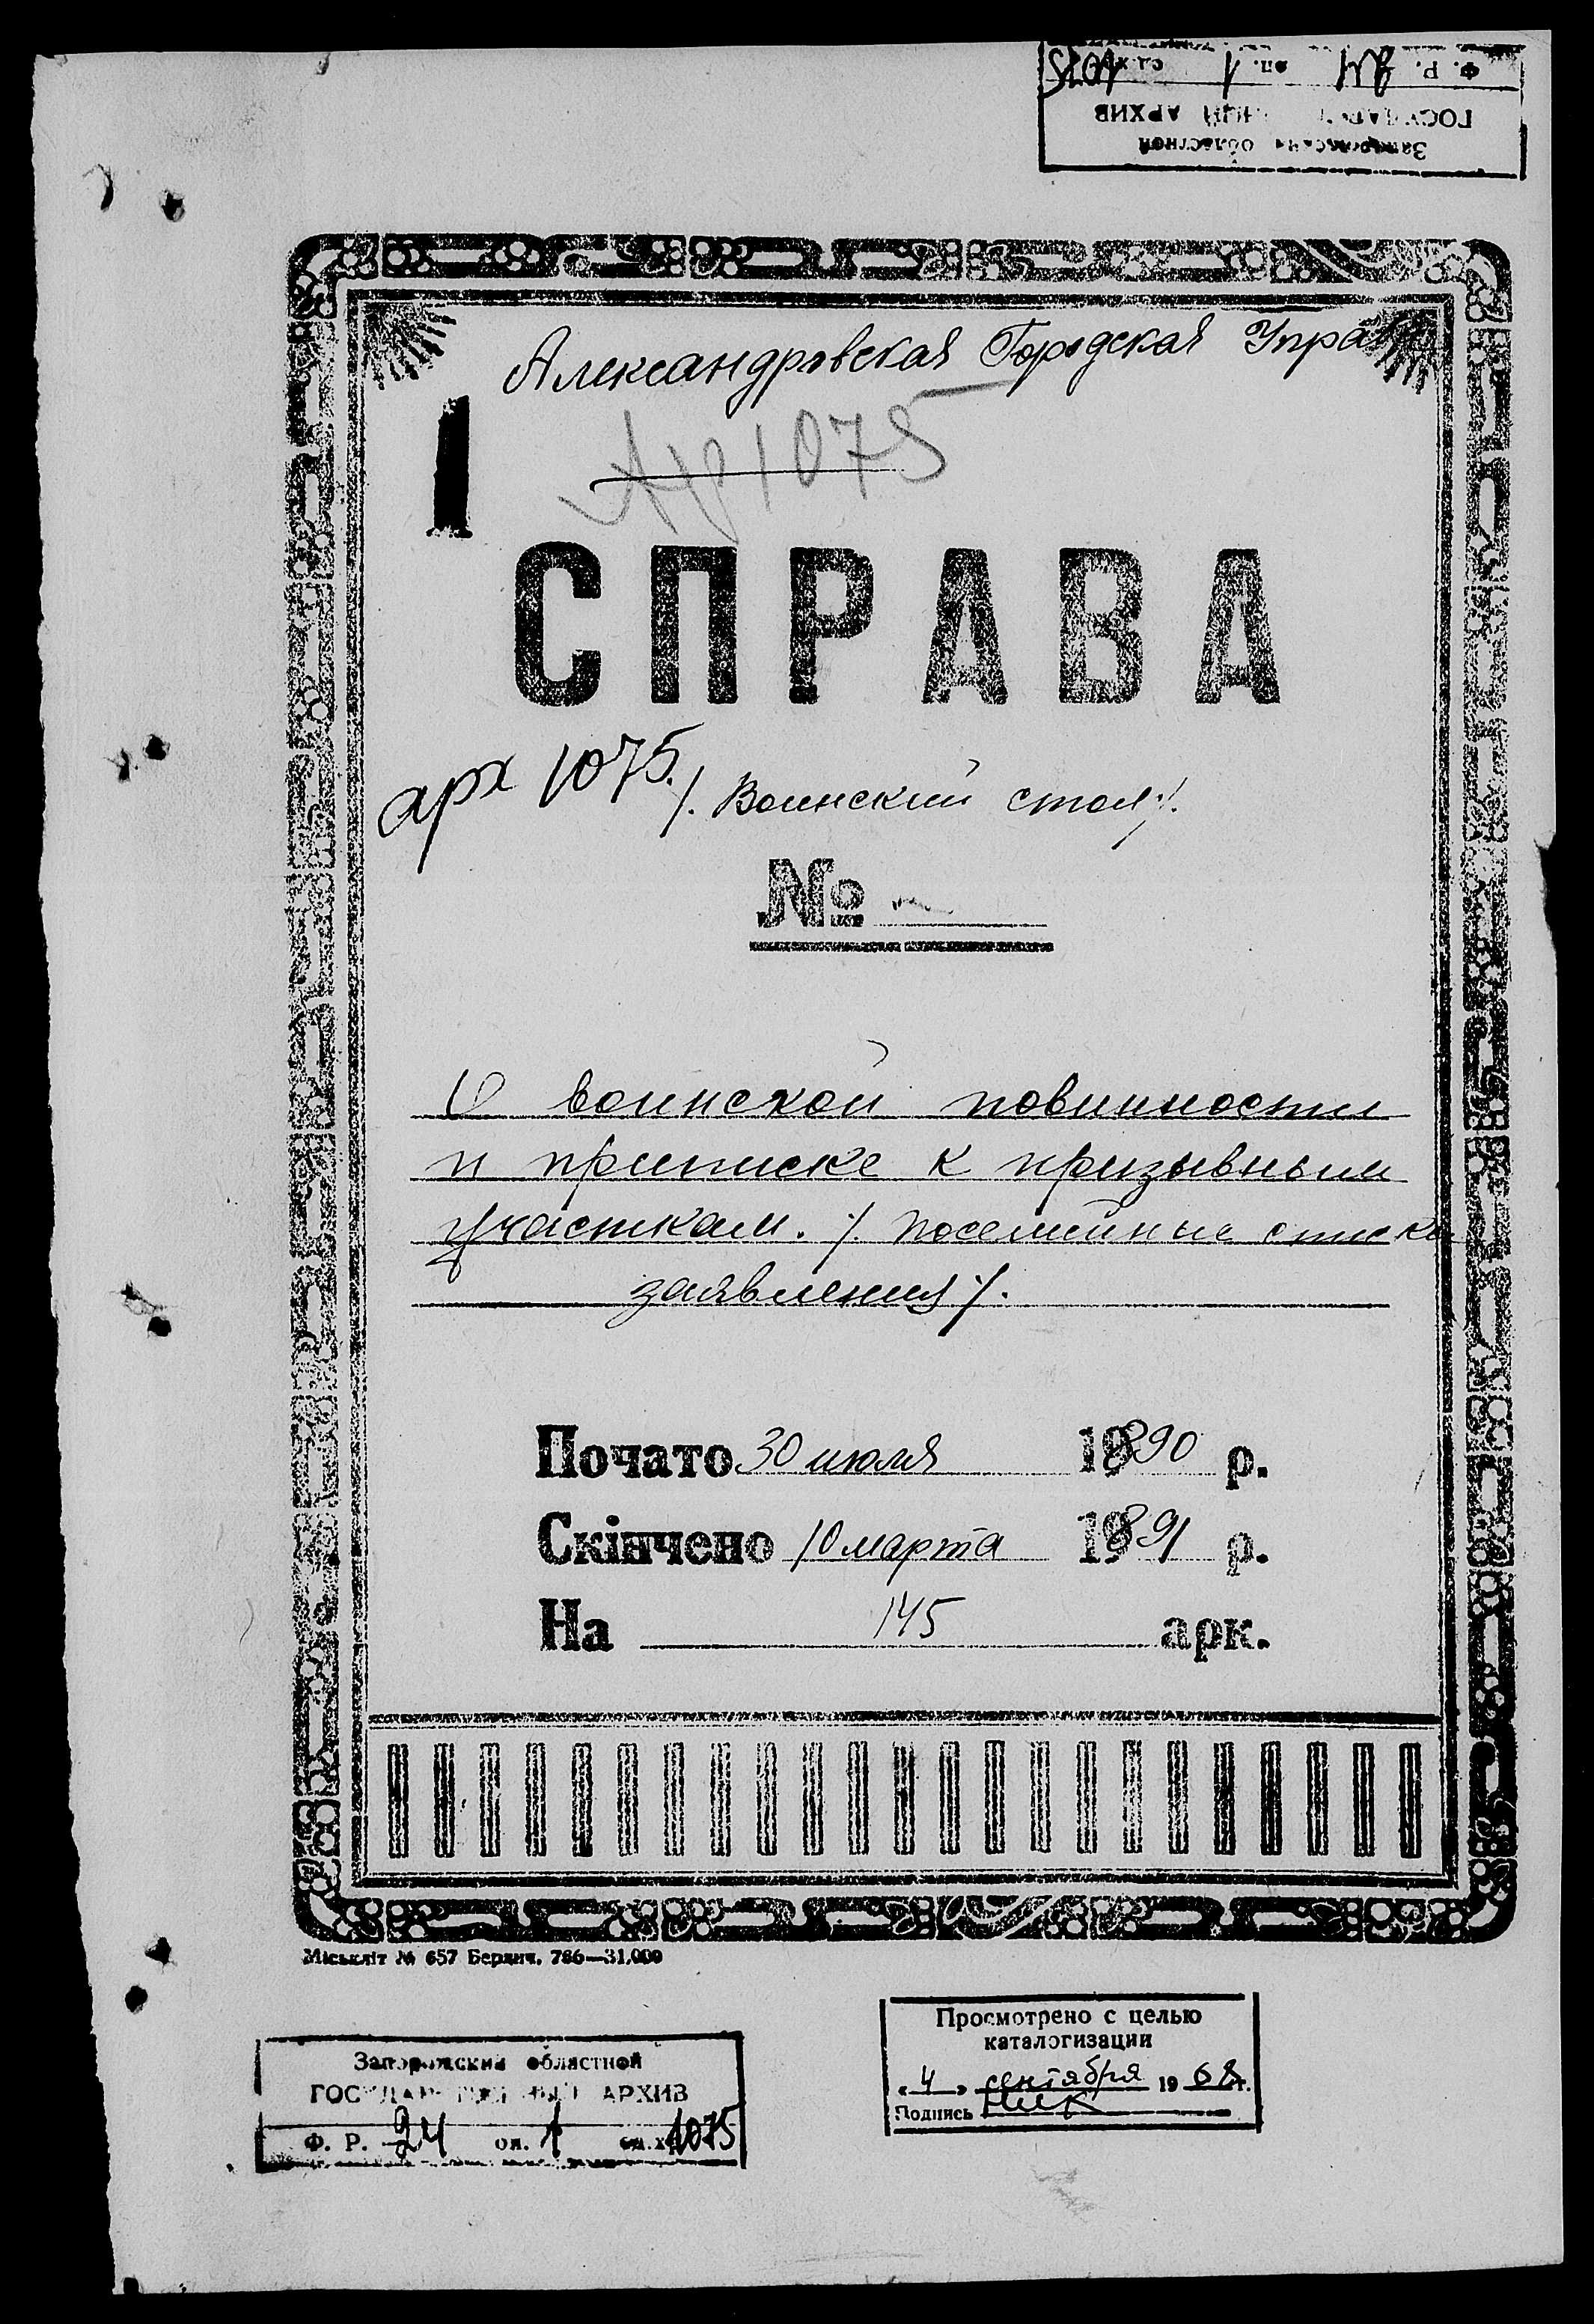 Ф. Р. 24 оп. 1 ед.хр. 1075
ГОСУДАРСТВЕННЫЙ АРХИВ
Запорожский областной
Александровская Городская Управа
Арх 1075
СПРАВА
арх 1075.
/. Воинский стол ./.
№ —
О воинской повинности
и приписке к призывным
участкам. /. посемейные списки
заявления /.
Почато 30 июля 1890 р.
Скінчено 10 марта 1891 р.
На 145 арк.
Міськліт № 657 Бердич. 786—31.000
Просмотрено с целью
каталогизации
«4» сентября 1968 г.
Подпись
Запорожский областной
ГОСУДАРСТВЕННЫЙ АРХИВ
Ф. Р. 24 оп. 1 ед.хр. 1075